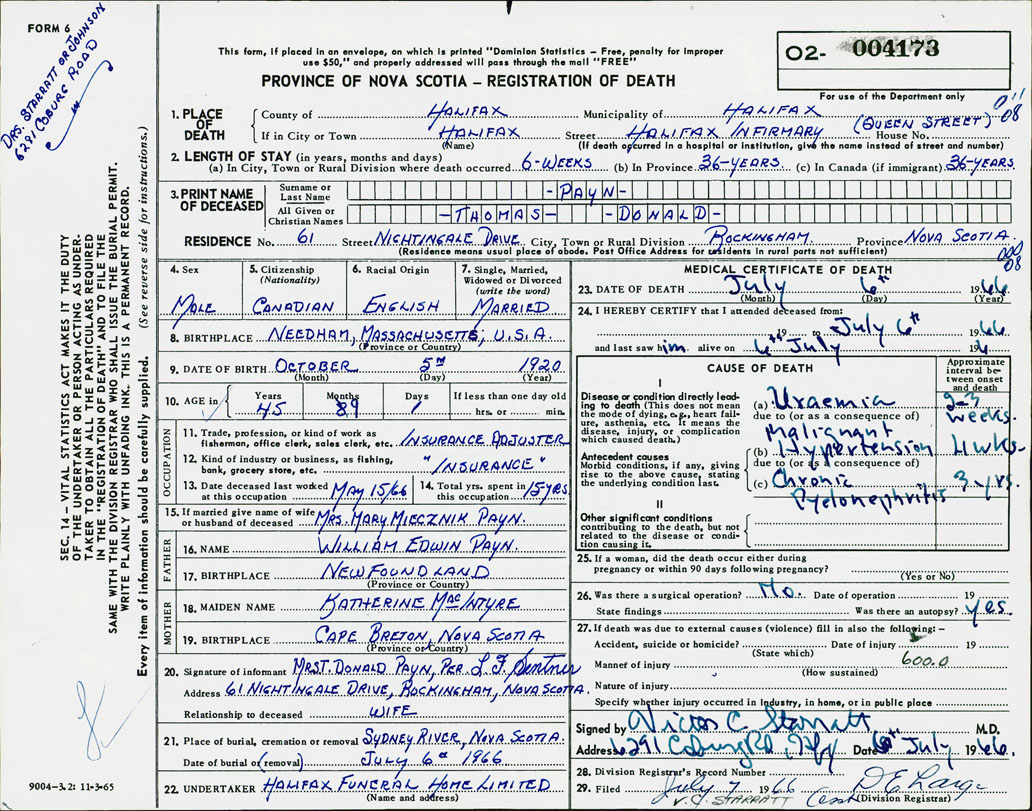 FORM 6
DRS. STARRATT OR JOHNSON
6291 COBURG ROAD
This form, if placed in an envelope, on which is printed "Dominion Statistics – Free, penalty for improper
use $50," and properly addressed will pass through the mail "FREE"
PROVINCE OF NOVA SCOTIA – REGISTRATION OF DEATH
O2- 004173
For use of the Department only
1. PLACE OF DEATH
County of HALIFAX Municipality of HALIFAX
If in City or Town HALIFAX Street HALIFAX INFIRMARY (QUEEN STREET) House No.
(Name) (If death occurred in a hospital or institution, give the name instead of street and number)
08
2. LENGTH OF STAY (in years, months and days)
(a) In City, Town or Rural Division where death occurred 6-WEEKS (b) In Province 36-YEARS. (c) In Canada (if immigrant) 36-YEARS.
3. PRINT NAME OF DECEASED
Surname or Last Name -PAYN-
All Given or Christian Names -THOMAS- -DONALD-
RESIDENCE No. 61 Street NIGHTINGALE DRIVE City, Town or Rural Division ROCKINGHAM Province NOVA SCOTIA.
(Residence means usual place of abode. Post Office Address for residents in rural parts not sufficient)
08
4. Sex MALE
5. Citizenship (Nationality) CANADIAN
6. Racial Origin ENGLISH
7. Single, Married, Widowed or Divorced (write the word) MARRIED
8. BIRTHPLACE NEEDHAM, MASSACHUSETTS, U.S.A.
(Province or Country)
9. DATE OF BIRTH OCTOBER 5TH 1920
(Month) (Day) (Year)
10. AGE in Years 45 Months Days 1 If less than one day old
hrs. or min.
OCCUPATION
11. Trade, profession, or kind of work as
fisherman, office clerk, sales clerk, etc. INSURANCE ADJUSTER
12. Kind of industry or business, as fishing,
bank, grocery store, etc. "INSURANCE"
13. Date deceased last worked
at this occupation MAY 15/66
14. Total yrs. spent in
this occupation 15 YRS.
15. If married give name of wife
or husband of deceased MRS. MARY MIECZNIK PAYN.
FATHER
16. NAME WILLIAM EDWIN PAYN.
17. BIRTHPLACE NEWFOUNDLAND
(Province or Country)
MOTHER
18. MAIDEN NAME KATHERINE MACINTYRE
19. BIRTHPLACE CAPE BRETON, NOVA SCOTIA
(Province or Country)
20. Signature of informant MRS T. DONALD PAYN, PER.
Address 61 NIGHTINGALE DRIVE, ROCKINGHAM, NOVA SCOTIA.
Relationship to deceased WIFE
21. Place of burial, cremation or removal SYDNEY RIVER, NOVA SCOTIA.
Date of burial (or removal) JULY 1966
22. UNDERTAKER HALIFAX FUNERAL HOME LIMITED
(Name and address)
MEDICAL CERTIFICATE OF DEATH
23. DATE OF DEATH July 6th 1966
(Month) (Day) (Year)
24. I HEREBY CERTIFY that I attended deceased from:
19 to July 6th 1966
and last saw him alive on 6th July 19
CAUSE OF DEATH
Approximate interval between onset and death
I
Disease or condition directly leading to death (This does not
mean the mode of dying, e.g., heart failure, asthenia, etc. It means the
disease, injury, or complication which caused death.)
(a) Uraemia 2-3 weeks.
due to (or as a consequence of)
Antecedent causes
Morbid conditions, if any, giving rise to the above cause, stating
the underlying condition last.
(b) Malignant Hypertension 4 wks.
due to (or as a consequence of)
(c) Chronic Pyelonephritis 3 yrs.
II
Other significant conditions
contributing to the death, but not
related to the disease or condition causing it.
25. If a woman, did the death occur either during
pregnancy or within 90 days following pregnancy?
(Yes or No)
26. Was there a surgical operation? No. Date of operation 19
State findings Was there an autopsy? yes.
27. If death was due to external causes (violence) fill in also the following:–
Accident, suicide or homicide? Date of injury 19
(State which)
600.0
Manner of injury
(How sustained)
Nature of injury
Specify whether injury occurred in industry, in home, or in public place
Signed by Victor C. Starratt M.D.
Address 6291 Coburg Rd. Hfx Date 6th July 1966.
28. Division Registrar's Record Number
29. Filed July 7 1966
V. C. STARRATT
(Division Registrar)
SEC. 14 – VITAL STATISTICS ACT MAKES IT THE DUTY
OF THE UNDERTAKER OR PERSON ACTING AS UNDER-
TAKER TO OBTAIN ALL THE PARTICULARS REQUIRED
IN THE "REGISTRATION OF DEATH" AND TO FILE THE
SAME WITH THE DIVISION REGISTRAR WHO SHALL ISSUE THE BURIAL PERMIT.
WRITE PLAINLY WITH UNFADING INK. THIS IS A PERMANENT RECORD.
Every item of information should be carefully supplied. (See reverse side for instructions.)
9004-3.2: 11-3-65